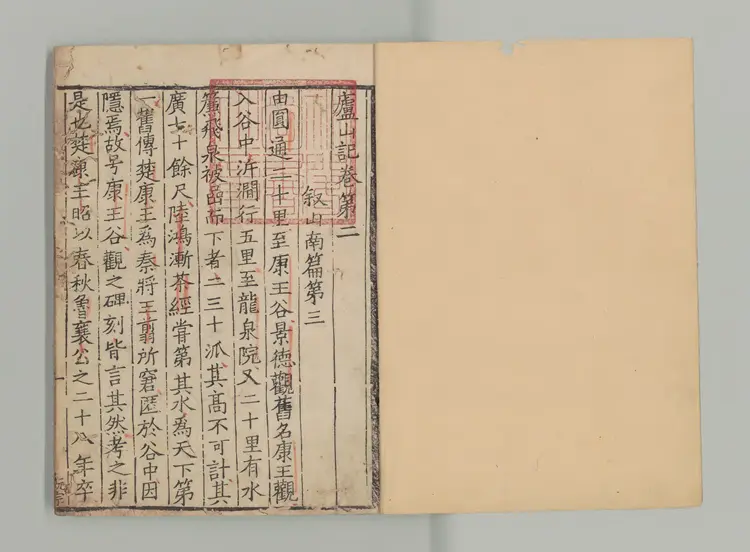 廬山記卷第二
叙山南篇第三
由圓通二十里至康王谷景德觀舊名康王觀
入谷中泝澗行五里至龍泉院又二十里有水
簾飛泉被嵒而下者二三十派其高不可計其
廣七十餘尺陸鴻漸茶經嘗第其水爲天下第
一舊傳楚康王爲秦將王翦所窘匿於谷中因
隱焉故号康王谷觀之碑刻皆言其然考之非
是也楚康王昭以春秋魯襄公之二十八年卒